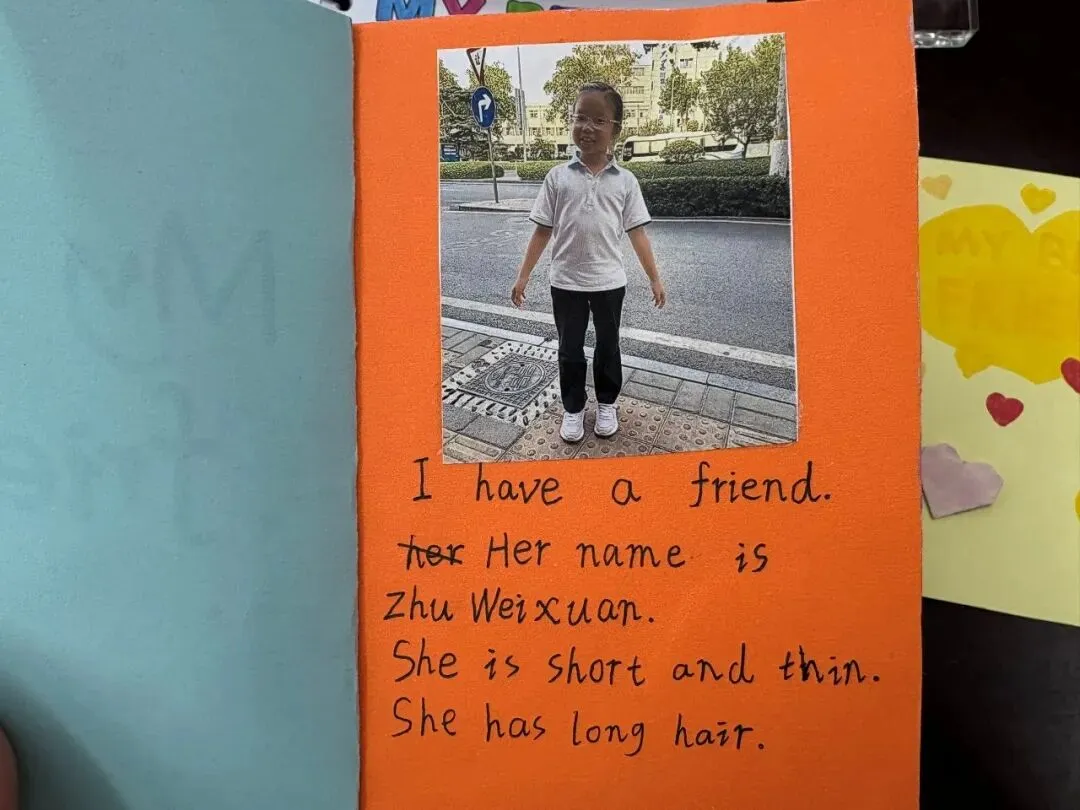 MY
I have a friend.
her Her name is
Zhu Weixuan.
She is short and thin.
She has long hair.
MY